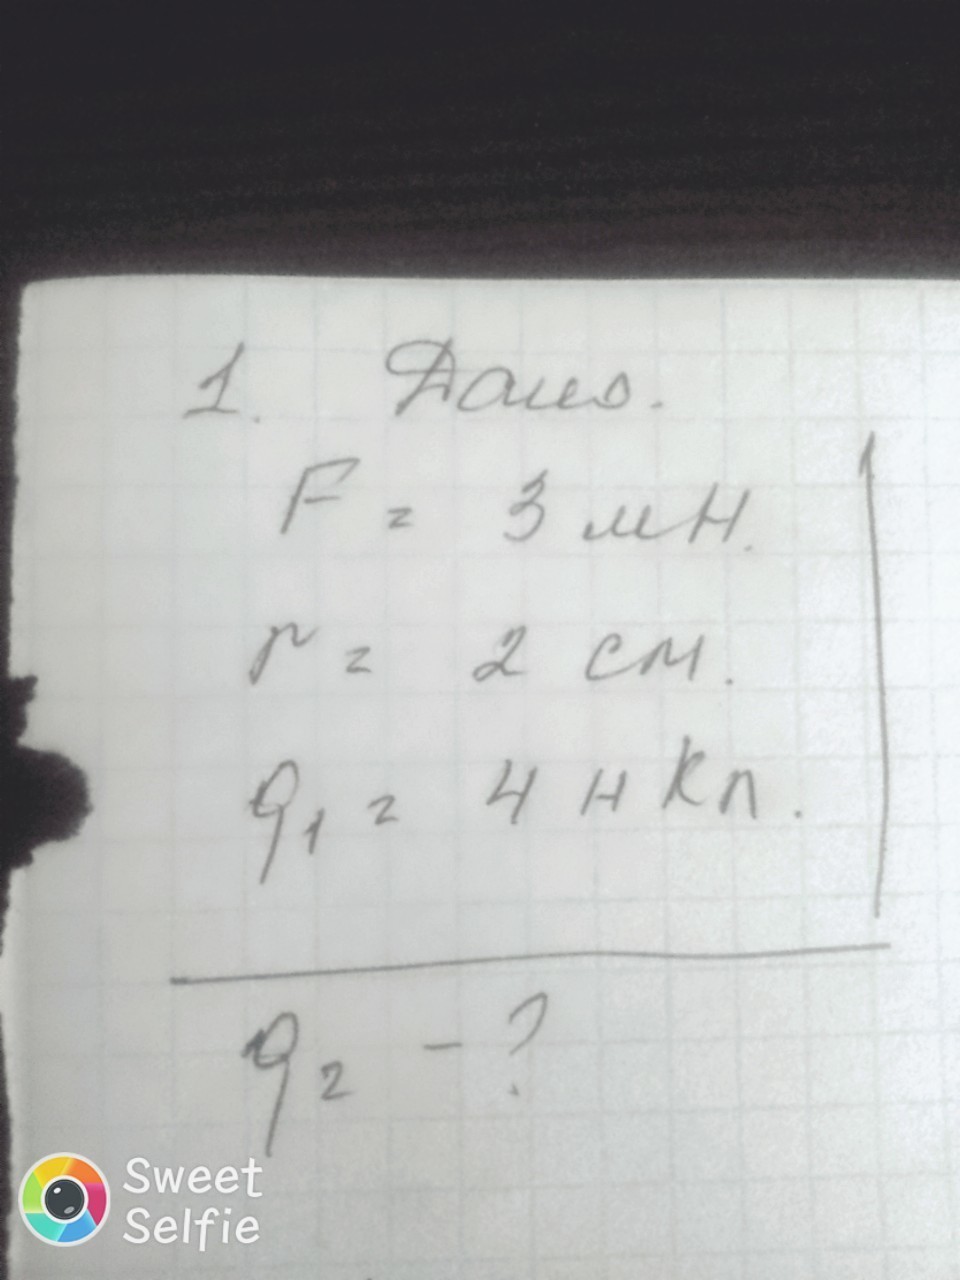 1. Дано.
F = 3 мН.
r = 2 см.
q1 = 4 нКл.
q2 - ?
Sweet
Selfie